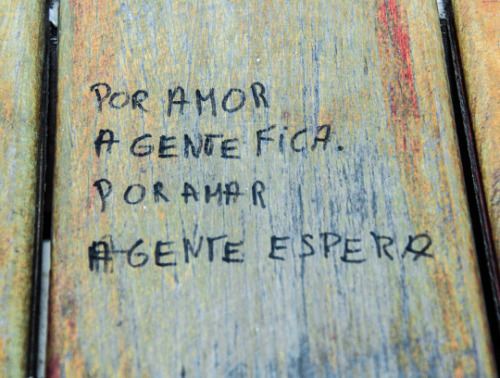 POR AMOR
A GENTE FiCA.
POR AMAR
A GENTE ESPERA